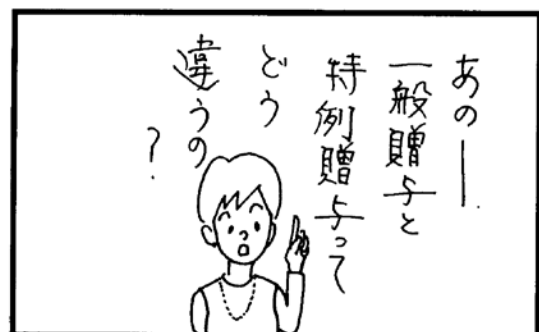 あのー
一般贈与と
特例贈与って
どう
違うの
？